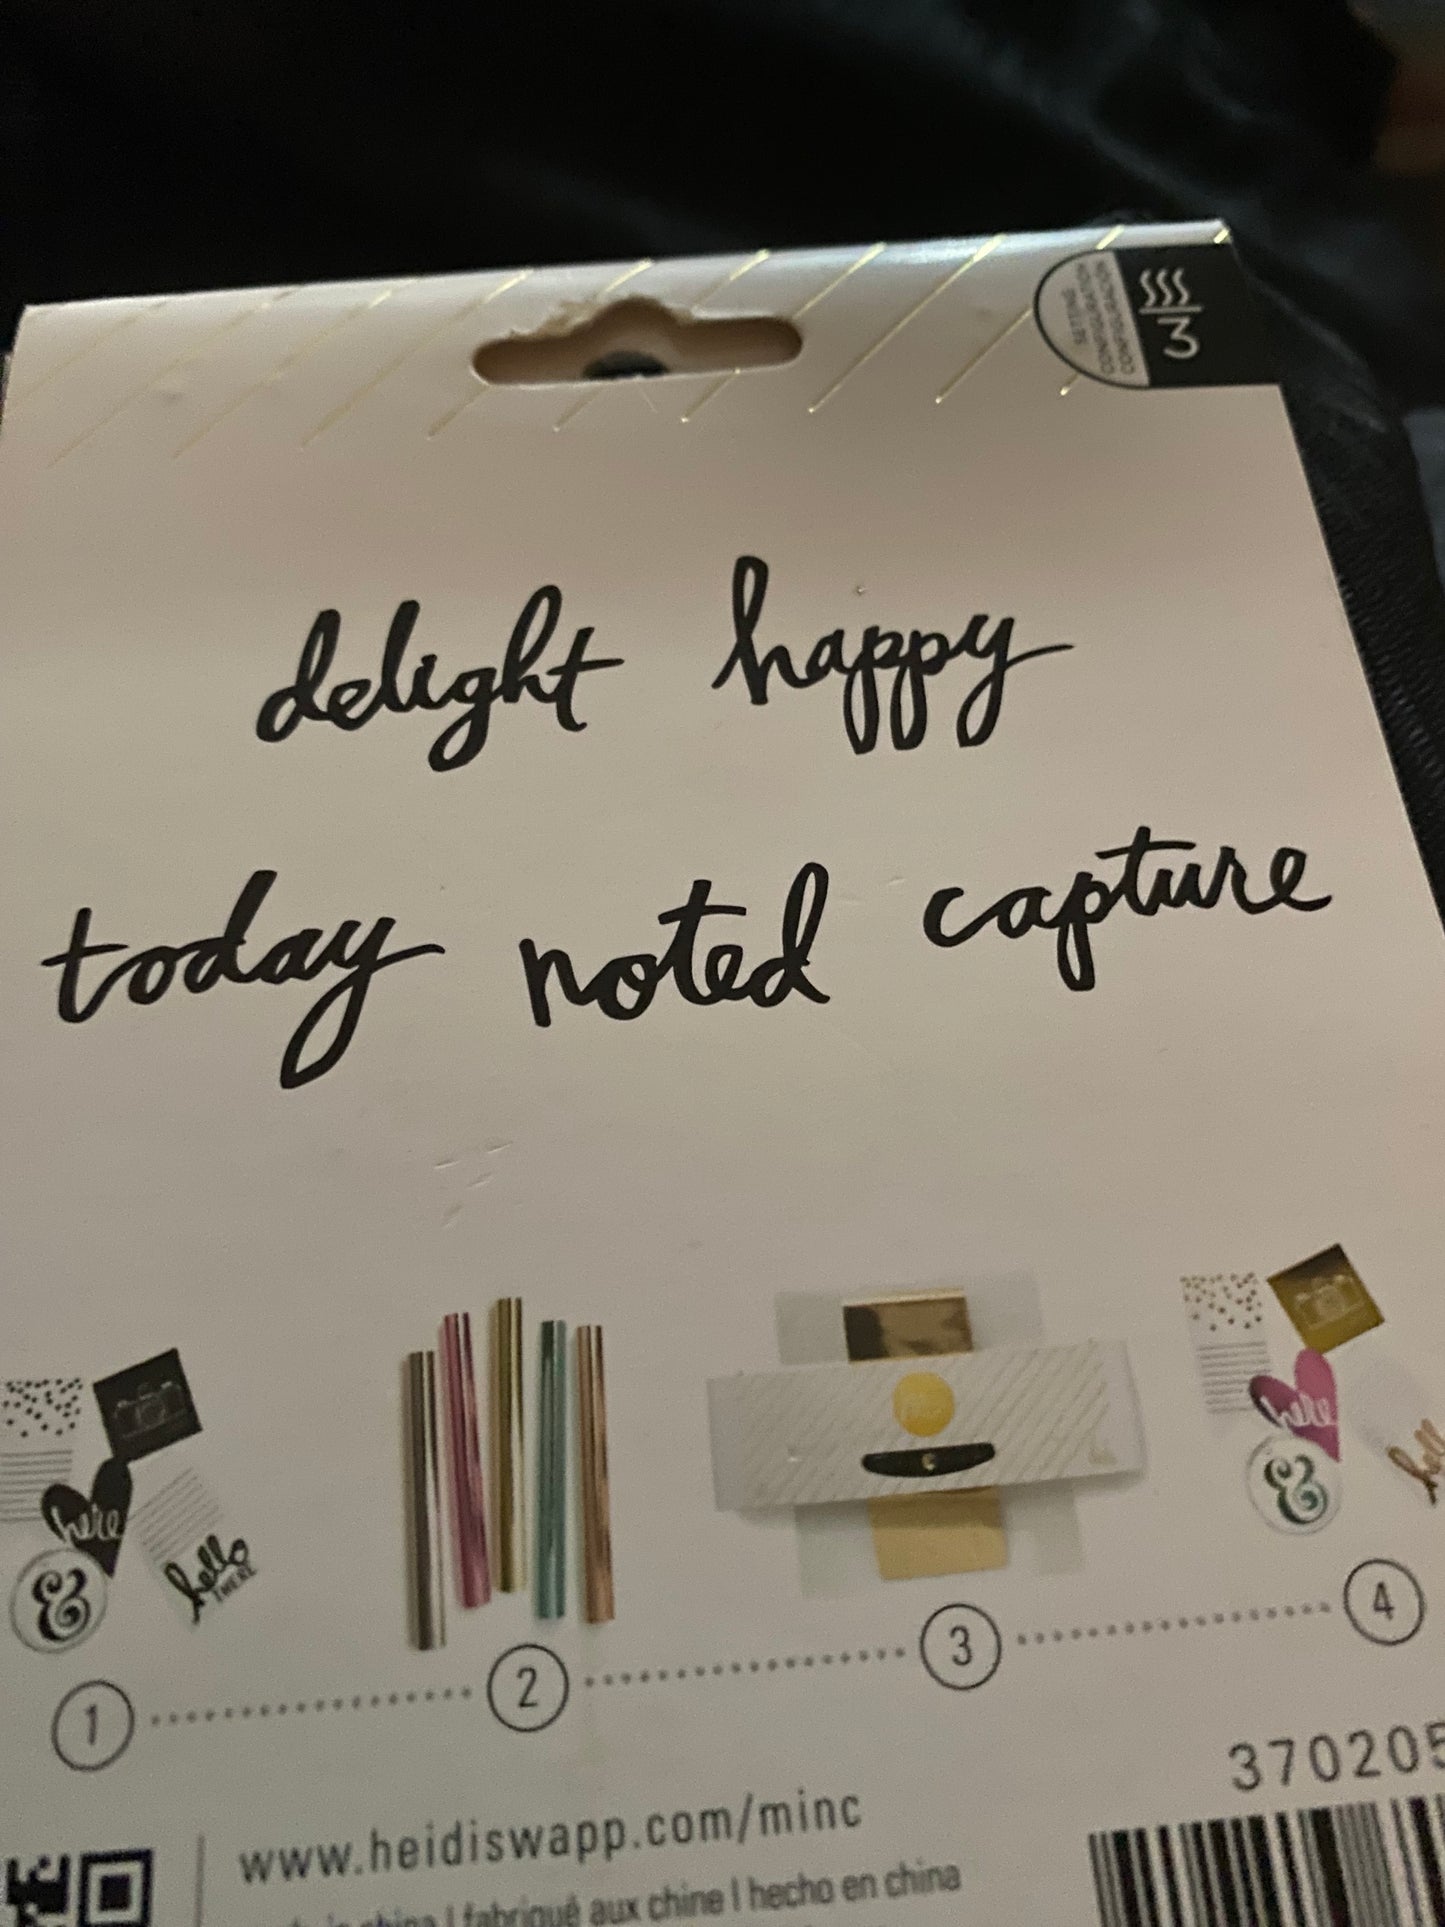 3
SETTING
delight happy
today noted capture
here
&
hello
THERE
here
&
1 2 3 4
370205
www.heidiswapp.com/minc
china | fabriqué aux chine | hecho en china